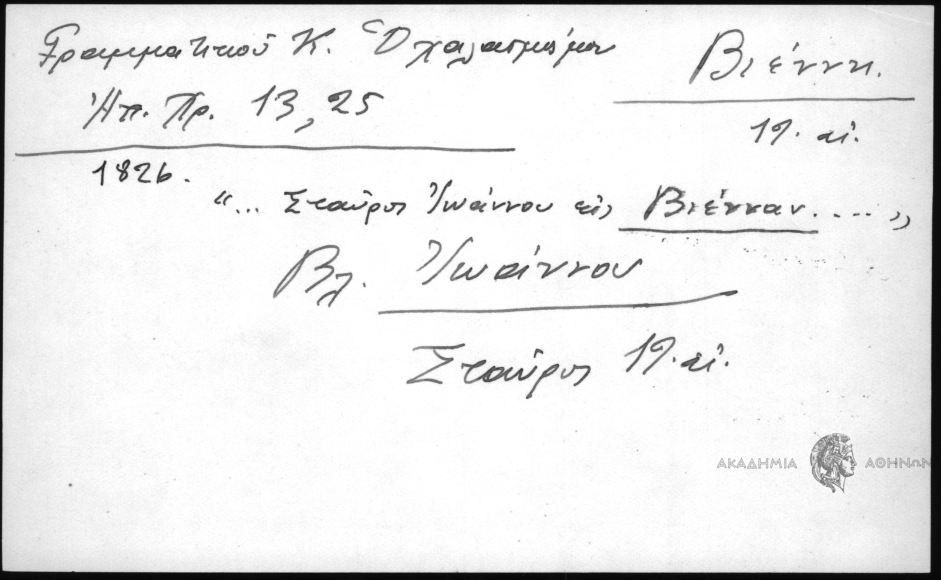 Γραμματικού Κ. Ὁ χαλασμένον
Βιέννη.
Ἠπ. Πρ. 13, 25
19. αἰ.
1826.
"... Σταῦρος Ἰωάννου εἰς Βιένναν....."
Βλ. Ἰωάννου
Σταῦρος 19. αἰ.
ΑΚΑΔΗΜΙΑ ΑΘΗΝΩΝ